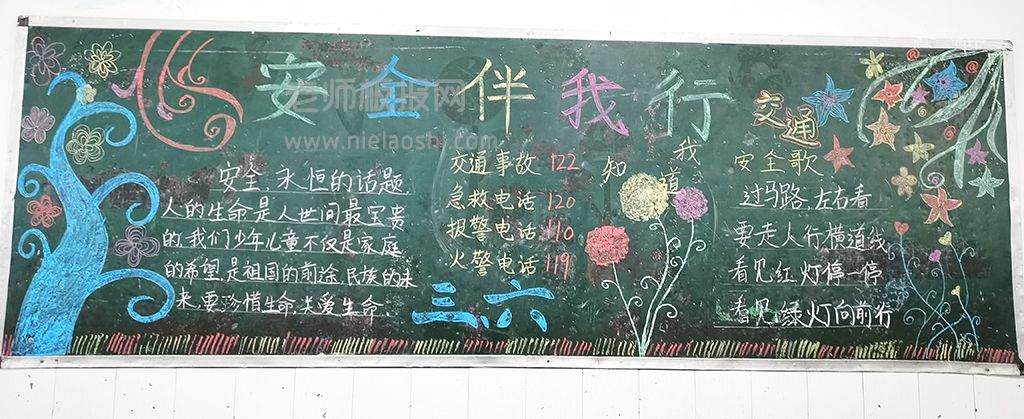 安全伴我行
老师板报网
www.nielaoshi.com
安全,永恒的话题,
人的生命是人世间最宝贵
的,我们少年儿童不仅是家庭
的希望,是祖国的前途,民族的未
来,要珍惜生命,关爱生命.
交通事故 122
急救电话 120
报警电话 110
火警电话 119
三.六
我知道
交通
安全歌
过马路,左右看
要走人行横道线
看见红灯停一停
看见绿灯向前行